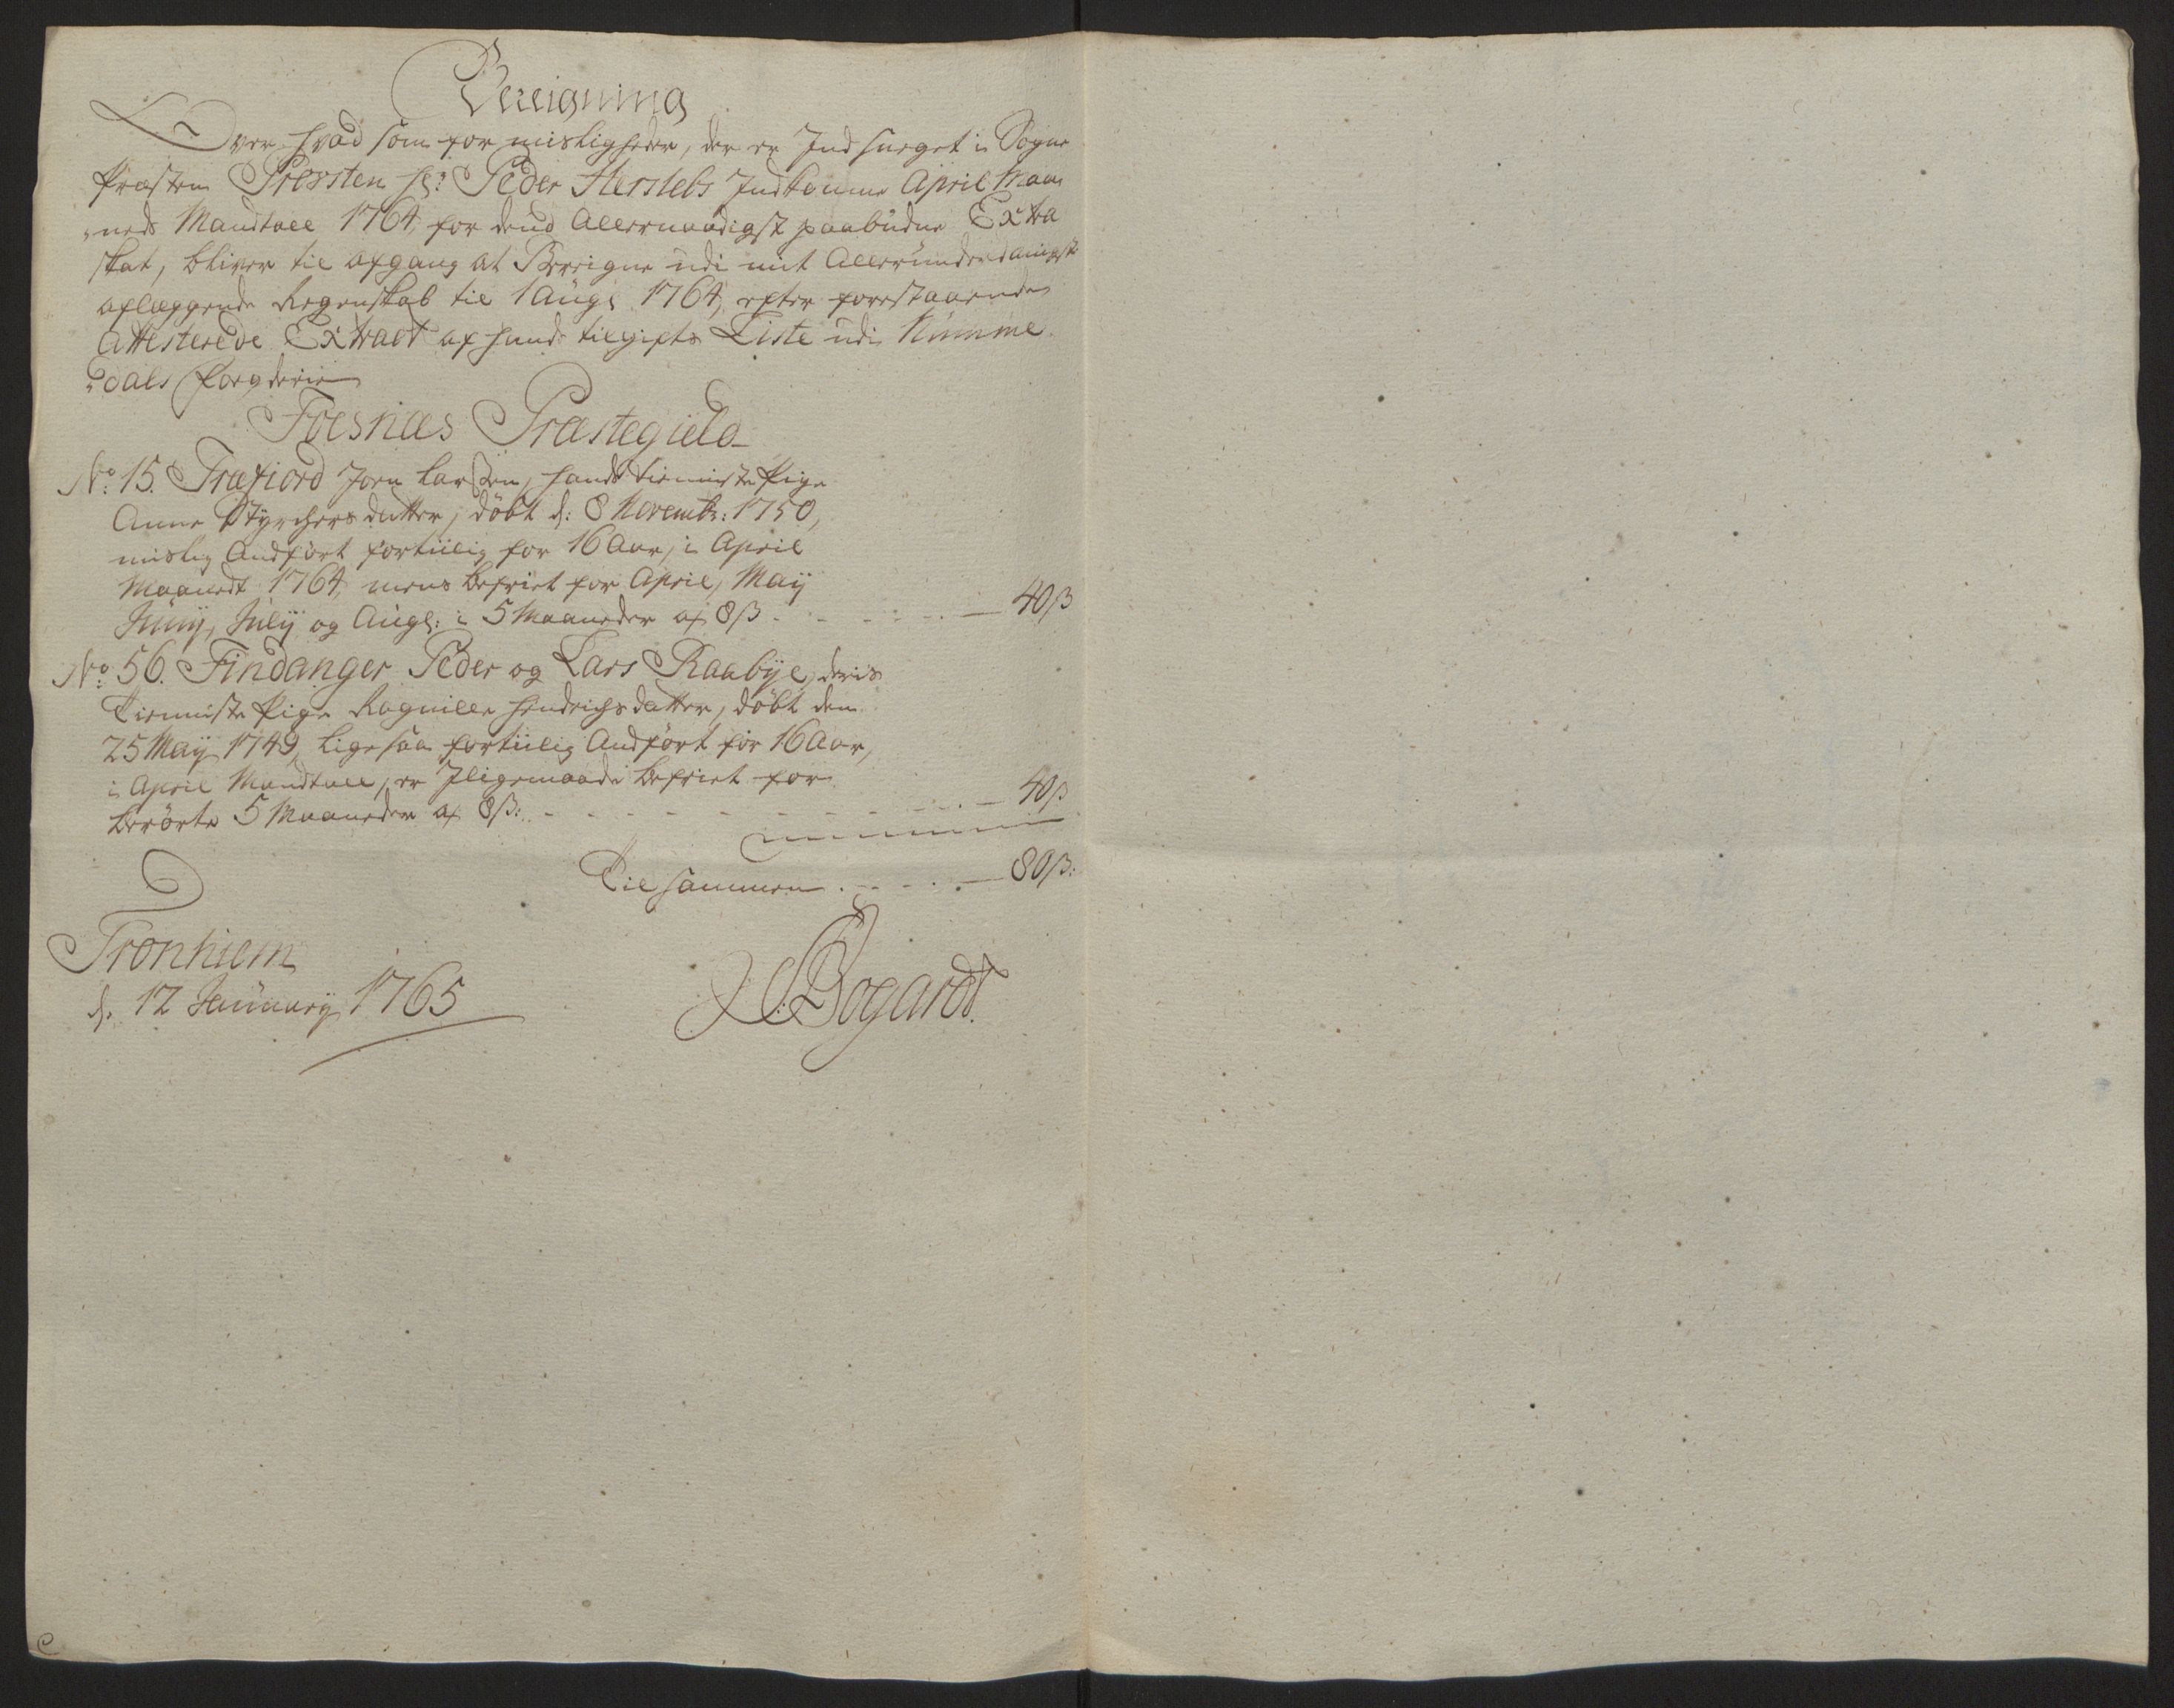 Bereigning
Over hvad som for misligheder, der er Indsneget i Sogne
Præsten Presten Hr: Peder Herslebs Indkomne April Maa
neds Mandtall 1764, for dend Allernaadigst paabudne Extra
skat, bliver til afgang at Bereigne udi mit Allerunderdanigst
aflæggende Regenskab til 1 Augs 1764, efter forestaaende
Attesterede Extract af hands tilgifts Liste udi Numme
dals fogderie
Foesnæs Præstegield
No: 15. Træfiord Joen Larsen, hands tienniste Pige
Anne Styrchersdatter, döbt d: 8 Novembr: 1750,
mislig Andfört fortiilig for 16 Aar, i April
Maanedt 1764, mens befriet for April, Maij
Junij, Julij og Augs: i 5 Maaneder af 8ß - - - - 40ß
No: 56. Findanger Peder og Lars Raabye, deris
Tienniste Pige Ragnille Hendrichsdatter, döbt den
25 Maij 1749, ligesaa fortiilig Andfört for 16 Aar,
i April Mandtall, er Iligemaade befriet for
berörte 5 Maaneder af 8ß: - - - - 40ß
Tilsammen - - - - 80ß:
Tronhiem
d. 12 January 1765
Bogardt